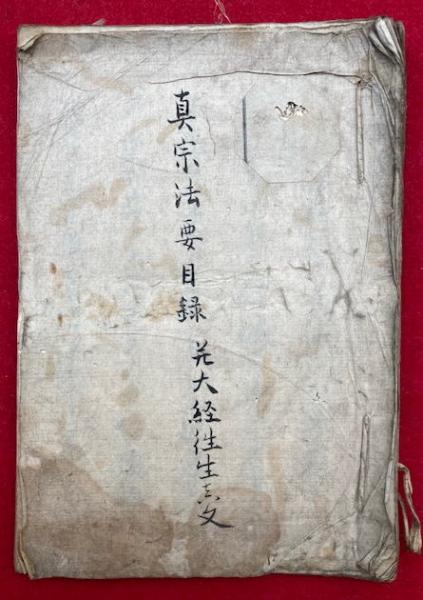 真宗法要目録 大経往生文